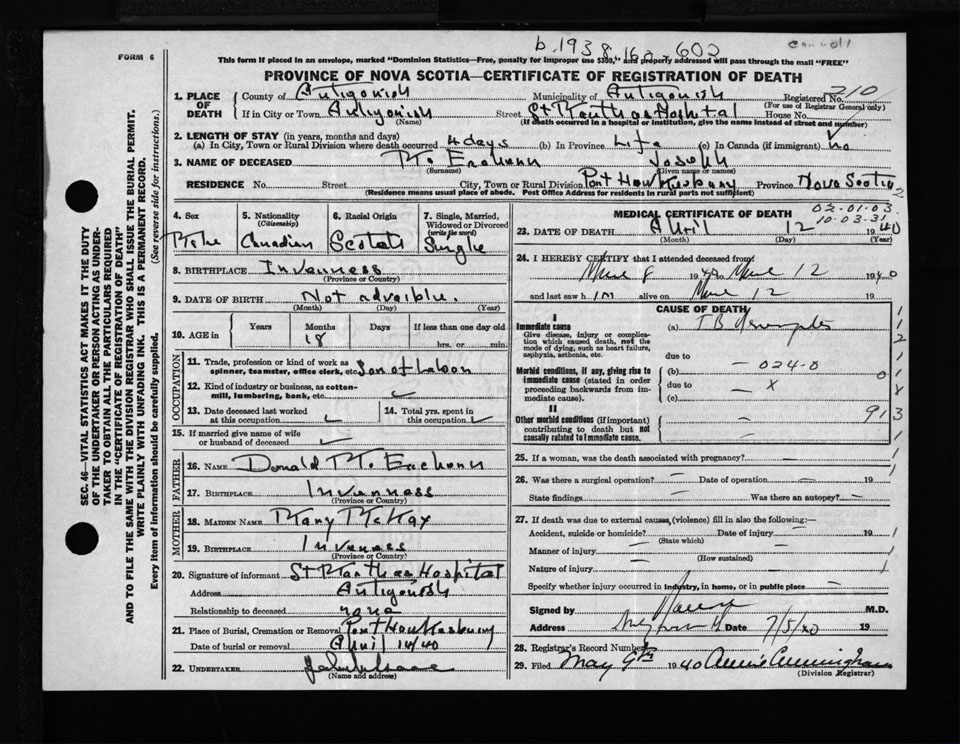 b. 1938 162-602
FORM 6
This form if placed in an envelope, marked "Dominion Statistics—Free, penalty for improper use $300," and properly addressed will pass through the mail "FREE"
PROVINCE OF NOVA SCOTIA—CERTIFICATE OF REGISTRATION OF DEATH
SEC. 46—VITAL STATISTICS ACT MAKES IT THE DUTY
OF THE UNDERTAKER OR PERSON ACTING AS UNDER-
TAKER TO OBTAIN ALL THE PARTICULARS REQUIRED
IN THE "CERTIFICATE OF REGISTRATION OF DEATH"
AND TO FILE THE SAME WITH THE DIVISION REGISTRAR WHO SHALL ISSUE THE BURIAL PERMIT.
WRITE PLAINLY WITH UNFADING INK. THIS IS A PERMANENT RECORD.
Every item of information should be carefully supplied. (See reverse side for instructions.)
1. PLACE OF DEATH
County of Antigonish Municipality of Antigonish Registered No. 210
(For use of Registrar General only)
If in City or Town Antigonish Street St Marthas Hospital House No.
(Name) (If death occurred in a hospital or institution, give the name instead of street and number)
2. LENGTH OF STAY (in years, months and days)
(a) In City, Town or Rural Division where death occurred 4 days (b) In Province Life (c) In Canada (if immigrant) no
3. NAME OF DECEASED Mc Eachern Joseph
(Surname) (Given name or names)
RESIDENCE No. Street City, Town or Rural Division Port Hawkesbury Province Nova Scotia
(Residence means usual place of abode. Post Office Address for residents in rural parts not sufficient)
4. Sex
5. Nationality (Citizenship)
6. Racial Origin
7. Single, Married, Widowed or Divorced (write the word)
Male Canadian Scotch Single
8. BIRTHPLACE Inverness
(Province or Country)
9. DATE OF BIRTH Not advisible.
(Month) (Day) (Year)
10. AGE in Years Months Days If less than one day old
18 hrs. or min.
OCCUPATION
11. Trade, profession or kind of work as
spinner, teamster, office clerk, etc. Son of Labor
12. Kind of industry or business, as cotton-
mill, lumbering, bank, etc.
13. Date deceased last worked
at this occupation
14. Total yrs. spent in
this occupation
15. If married give name of wife
or husband of deceased
FATHER
16. NAME Donald Mc Eachern
17. BIRTHPLACE Inverness
(Province or Country)
MOTHER
18. MAIDEN NAME Mary McKay
19. BIRTHPLACE Inverness
(Province or Country)
20. Signature of informant St Marthas Hospital
Address Antigonish
Relationship to deceased none
21. Place of Burial, Cremation or Removal Port Hawkesbury
Date of burial or removal April 14/40
22. UNDERTAKER
(Name and address)
MEDICAL CERTIFICATE OF DEATH
02.01.03.
10.03.31
23. DATE OF DEATH April 12 1940
(Month) (Day) (Year)
24. I HEREBY CERTIFY that I attended deceased from
8 1940 12 1940
and last saw him alive on 12 19
CAUSE OF DEATH
I
Immediate cause
Give disease, injury or complica-
tion which caused death, not the
mode of dying, such as heart failure,
asphyxia, asthenia, etc.
(a) TB
due to
Morbid conditions, if any, giving rise to
immediate cause (stated in order
proceeding backwards from im-
mediate cause).
(b) 024-0
due to X
(c)
II
Other morbid conditions (if important)
contributing to death but not
causally related to immediate cause.
913
25. If a woman, was the death associated with pregnancy?
26. Was there a surgical operation? Date of operation 19
State findings Was there an autopsy?
27. If death was due to external causes, (violence) fill in also the following:—
Accident, suicide or homicide? Date of injury 19
(State which)
Manner of injury
(How sustained)
Nature of injury
Specify whether injury occurred in industry, in home, or in public place
Signed by M.D.
Address Date 7/5/40 19
28. Registrar's Record Number
29. Filed May 9th 1940 Annie Cunningham
(Division Registrar)